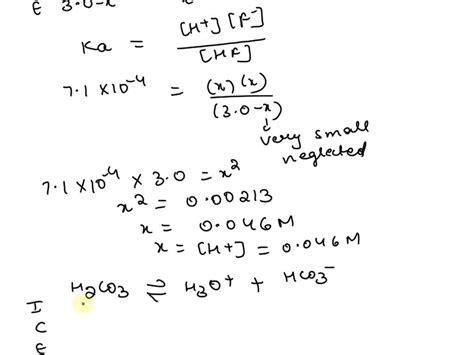 E 3.0-x x
Ka = [H+] [F-] / [HF]
7.1 × 10⁻⁴ = (x) (x) / (3.0-x)
very small
neglected
7.1 × 10⁻⁴ × 3.0 = x²
x² = 0.00213
x = 0.046 M
x = [H+] = 0.046 M
H2CO3 ⇌ H3O+ + HCO3⁻
I
C
E